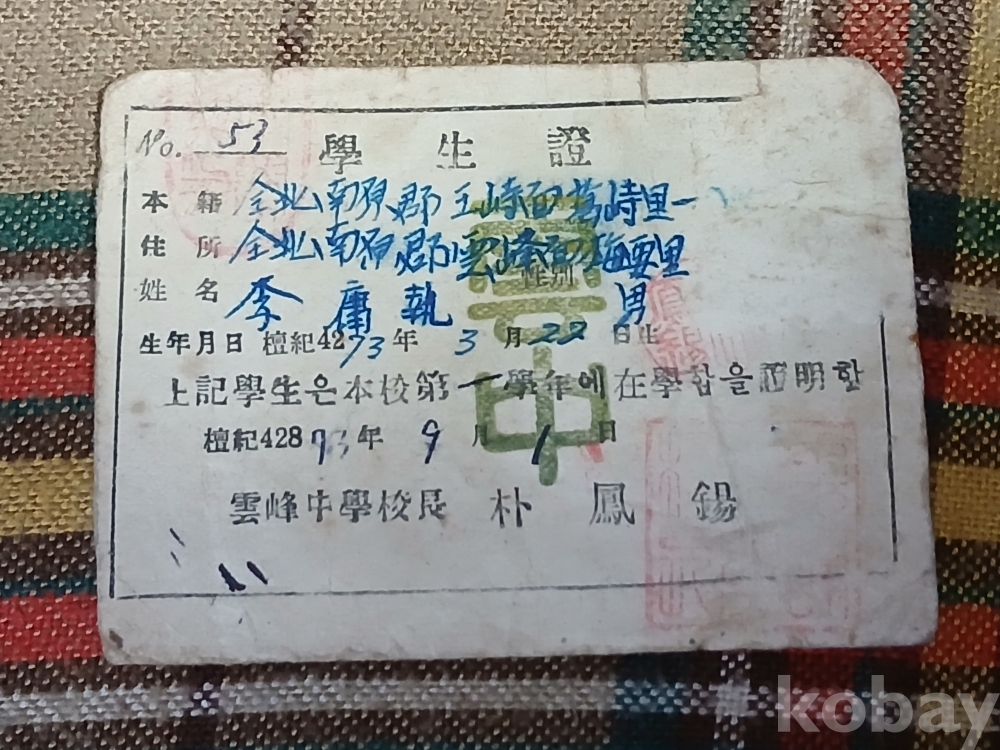 No. 53 學生證
本籍 全北南原郡王峙面葛峙里一
住所 全北南原郡雲峰面梅要里
姓名 李庸執 性別 男
生年月日 檀紀4273年3月22日生
上記學生은本校第一學年에在學함을證明함
檀紀428 年9月1日
雲峰中學校長 朴鳳錫
雲中
kobay